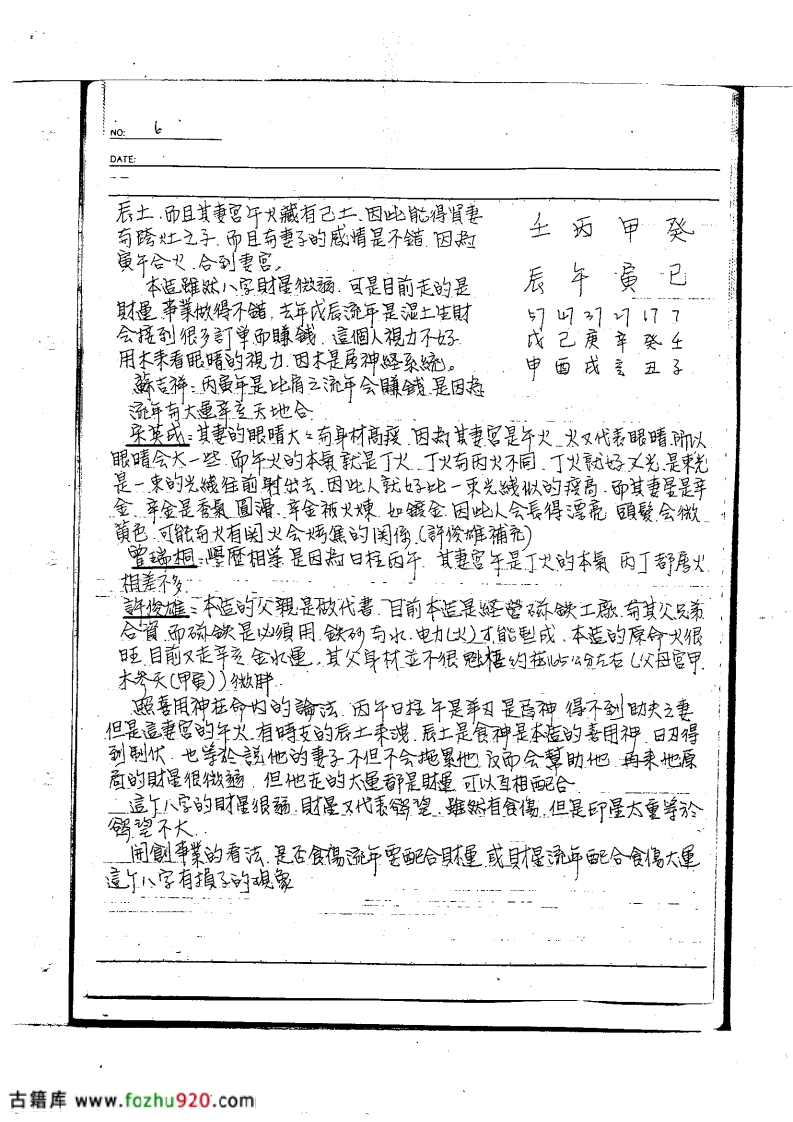 NO: 6
DATE:
辰土.而且其妻宮午火藏有己土.因此能得賢妻
与跨灶之子.而且与妻子的感情是不錯.因為
寅午合火.合到妻宮。
本造雖然八字財星微弱.可是目前走的是
財運.事業做得不錯.去年戊辰流年是湿土生財
会接到很多訂单而賺錢.這個人視力不好.
用木来看眼睛的視力.因木是屬神経系統。
蘇吉祥:丙寅年是比肩之流年会賺錢.是因為
流年与大運辛亥天地合
壬 丙 甲 癸
辰 午 寅 巳
57 47 37 27 17 7
戊 己 庚 辛 癸 壬
申 酉 戌 亥 丑 子
宋英成:其妻的眼睛大:与身材高瘦.因為其妻宮是午火.火又代表眼睛.所以
眼睛会大一些.而午火的本氣就是丁火.丁火与丙火不同.丁火就好光.是束光
是一束的光線往前射出去.因此人就好比一束光線似的瘦高.而其妻星是辛
金.辛金是香氣圓滑.辛金被火煉.如鍍金.因此人会長得漂亮.頭髮会微
黄色.可能与火有関火会烤焦的関係.(許俊雄補充)
曽瑞桐:學歷相等是因為日柱丙午.其妻宮午是丁火的本氣.丙丁都屬火
相差不多.
許俊雄:本造的父親是做代書.目前本造是経營磁鉄工廠.与其父兄弟
合資.而磁鉄是必須用.鉄砂与水.电力(火)才能製成.本造的原命火很
旺.目前又走辛亥金水運.其父身材並不很魁梧約在165公分左右(父母宮甲
木参天(甲寅))微胖.
照喜用神在命内的論法.丙午日柱午是羊刃是忌神.得不到助夫之妻
但是這妻宮的午火.有時支的辰土来洩.辰土是食神是本造的喜用神.日刃得
到制伏.也等於説他的妻子不但不会拖累他.反而会幫助他.再来他原
局的財星很微弱.但他走的大運都是財運.可以互相配合.
這个八字的財星很弱.財星又代表慾望.雖然有食傷.但是印星太重等於
慾望不大.
開創事業的看法.是否食傷流年要配合財運.或財星流年配合食傷大運
這个八字有損子的現象
古籍库 www.fozhu920.com